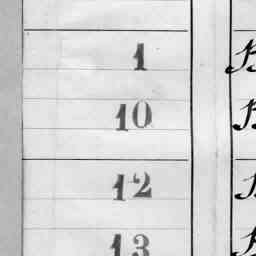 1
10
12
13